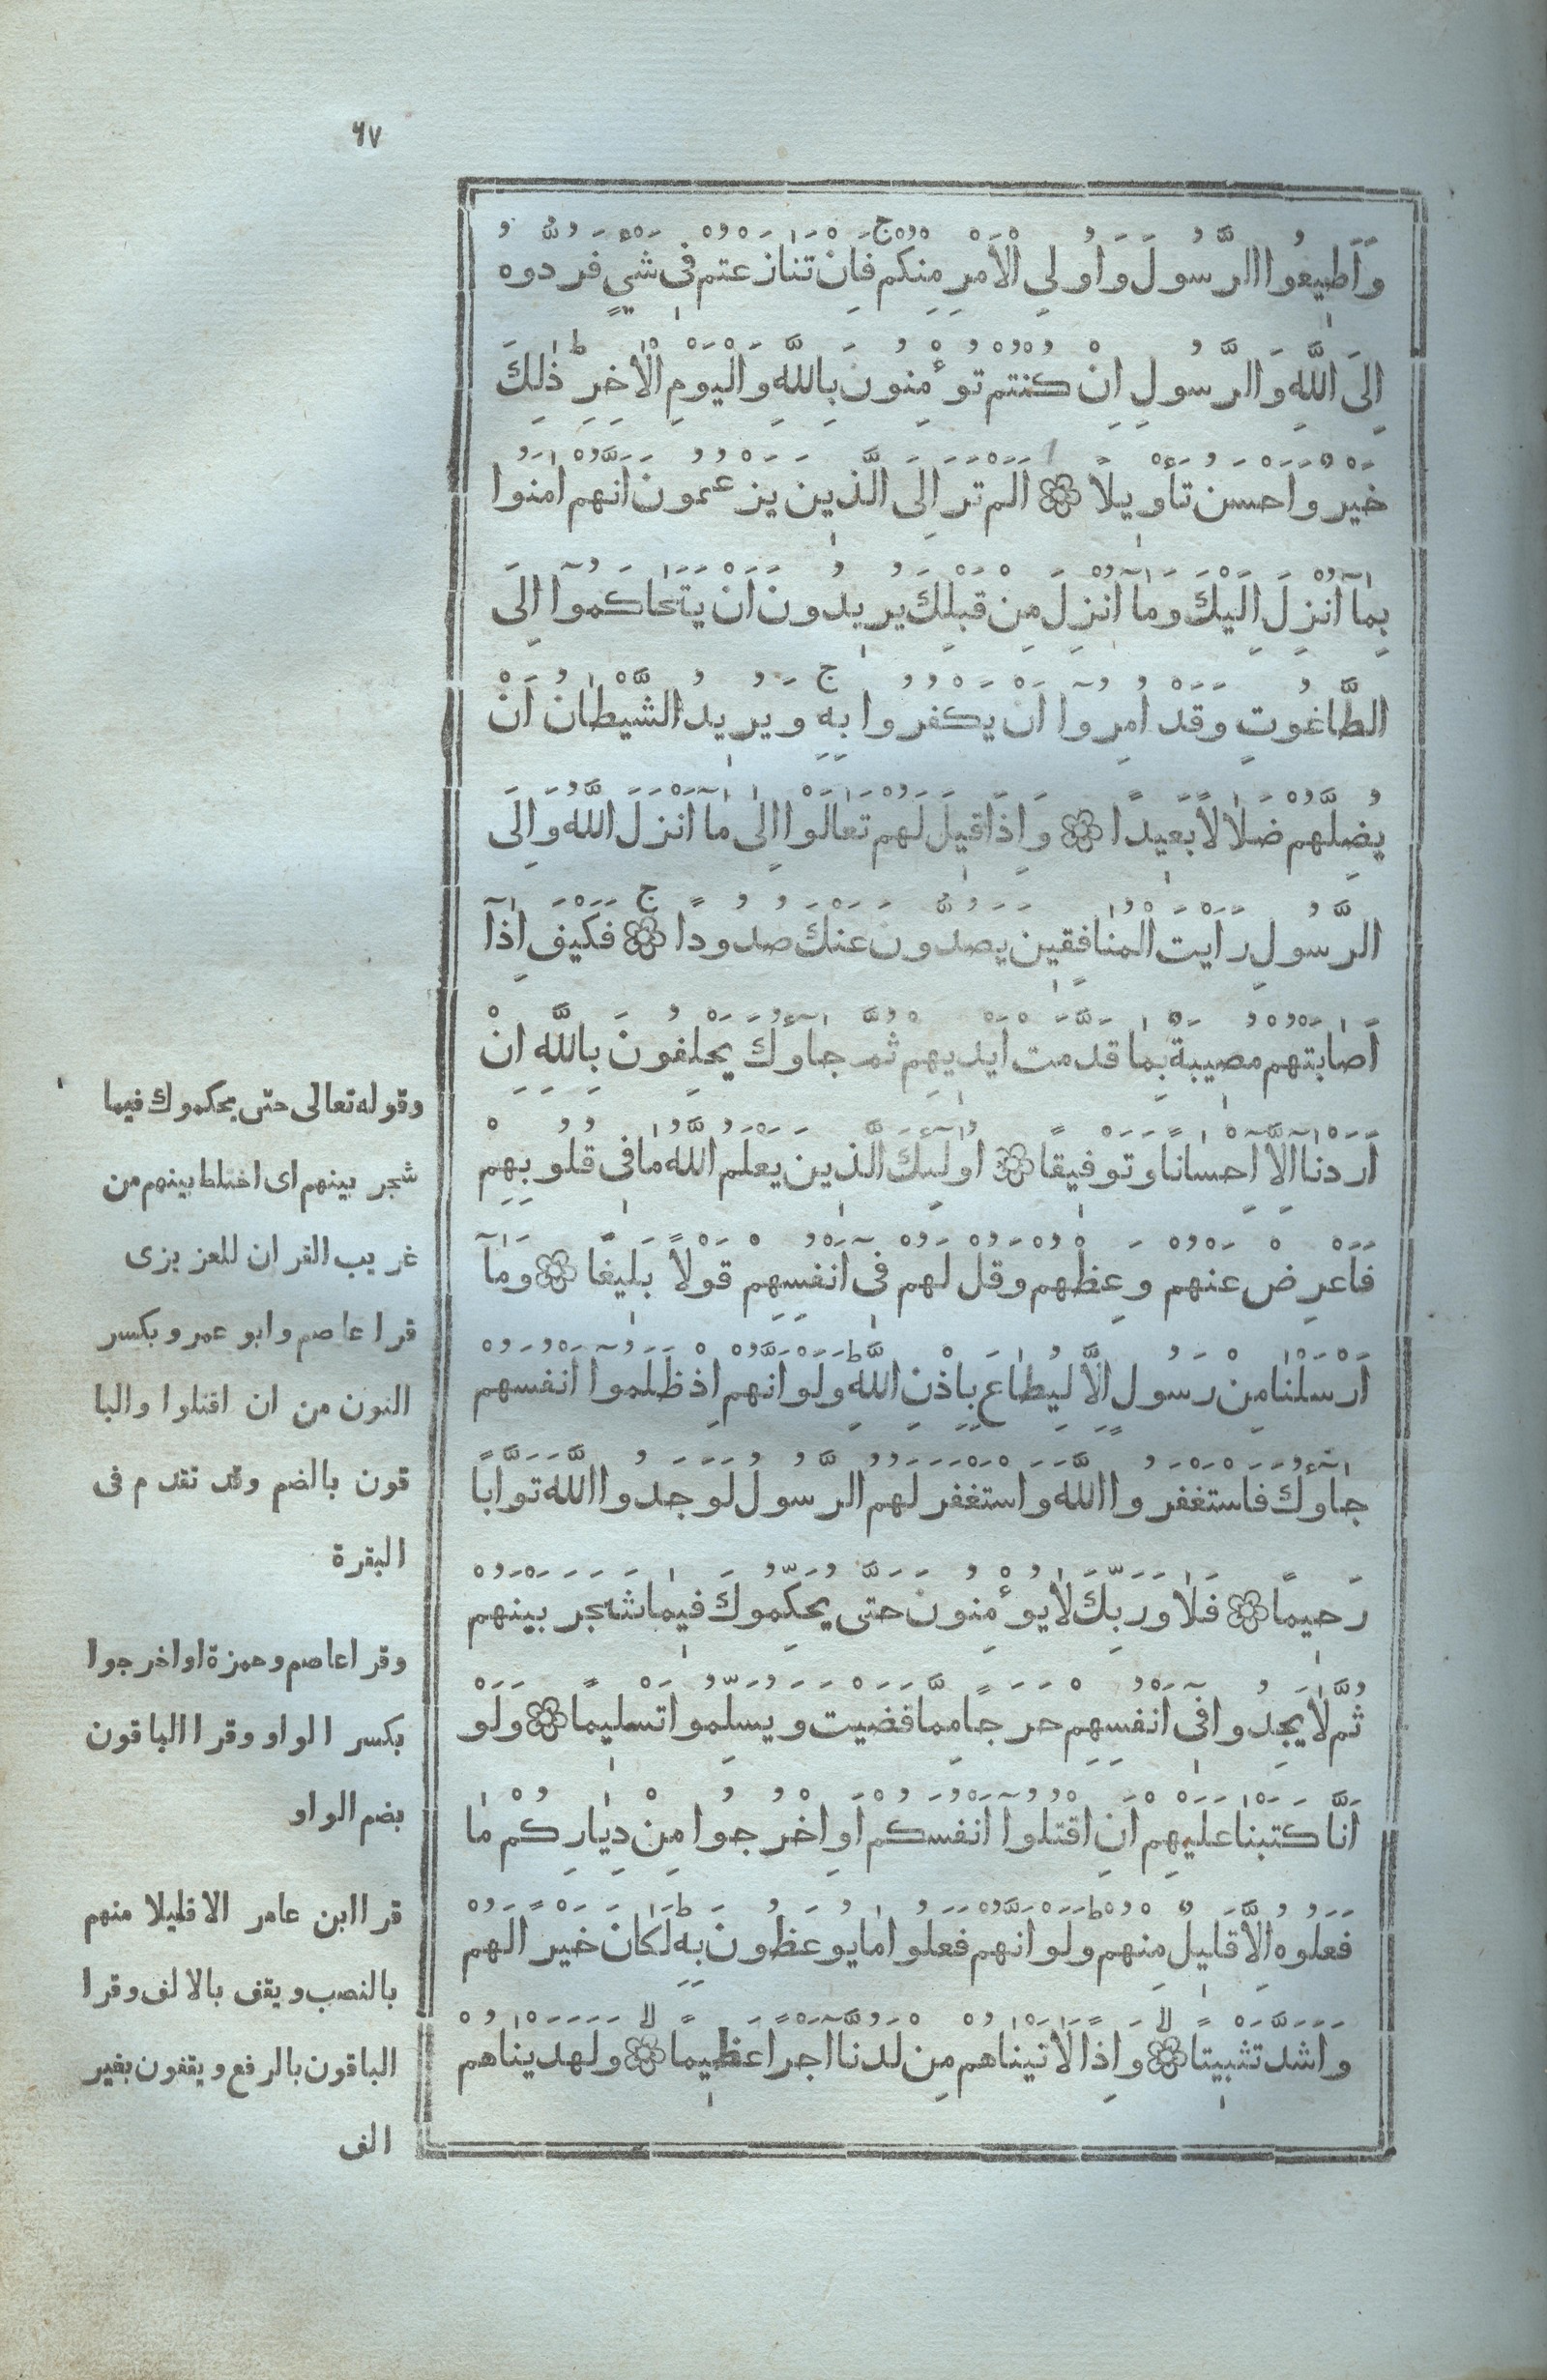 ٦٧
وَاَطٖيعُوا الرَّسُولَ وَاُولِى الْاَمْرِ مِنْكُمْ ج فَاِنْ تَنَازَعْتُمْ فٖى شَىْءٍ فَرُدُّوهُ
اِلَى اللَّهِ وَالرَّسُولِ اِنْ كُنْتُمْ تُوْٴمِنُونَ بِاللَّهِ وَالْيَوْمِ الْاٰخِرِ ط ذٰلِكَ
خَيْرٌ وَاَحْسَنُ تَأْوٖيلاً ۞ اَلَمْ تَرَ اِلَى الَّذٖينَ يَزْعُمُونَ اَنَّهُمْ اٰمَنُوا
بِمٰٓا اُنْزِلَ اِلَيْكَ وَمٰٓا اُنْزِلَ مِنْ قَبْلِكَ يُرٖيدُونَ اَنْ يَتَحٰاكَمُوٓا اِلَى
الطَّاغُوتِ وَقَدْ اُمِرُوٓا اَنْ يَكْفُرُوا بِهِ ج وَيُرٖيدُ الشَّيْطٰانُ اَنْ
يُضِلَّهُمْ ضَلٰالاً بَعٖيدًا ۞ وَاِذَا قٖيلَ لَهُمْ تَعٰالَوْا اِلٰى مٰٓا اَنْزَلَ اللَّهُ وَاِلَى
الرَّسُولِ رَاَيْتَ الْمُنٰافِقٖينَ يَصُدُّونَ عَنْكَ صُدُودًا ج ۞ فَكَيْفَ اِذٰٓا
اَصٰابَتْهُمْ مُصٖيبَةٌ بِمٰا قَدَّمَتْ اَيْدٖيهِمْ ثُمَّ جٰآوُٴكَ يَحْلِفُونَ بِاللَّهِ اِنْ
اَرَدْنٰٓا اِلَّآ اِحْسٰانًا وَتَوْفٖيقًا ۞ اُولٰٓئِكَ الَّذٖينَ يَعْلَمُ اللَّهُ مٰا فٖى قُلُوبِهِمْ
فَاَعْرِضْ عَنْهُمْ وَعِظْهُمْ وَقُلْ لَهُمْ فٖٓى اَنْفُسِهِمْ قَوْلاً بَلٖيغًا ۞ وَمٰٓا
اَرْسَلْنٰا مِنْ رَسُولٍ اِلَّا لِيُطٰاعَ بِاِذْنِ اللَّهِ ط وَلَوْ اَنَّهُمْ اِذْ ظَلَمُوٓا اَنْفُسَهُمْ
جٰآوُٴكَ فَاسْتَغْفَرُوا اللَّهَ وَاسْتَغْفَرَ لَهُمُ الرَّسُولُ لَوَجَدُوا اللَّهَ تَوَّابًا
رَحٖيمًا ۞ فَلٰا وَرَبِّكَ لٰا يُوْٴمِنُونَ حَتَّى يُحَكِّمُوكَ فٖيمٰا شَجَرَ بَيْنَهُمْ
ثُمَّ لٰا يَجِدُوا فٖٓى اَنْفُسِهِمْ حَرَجًا مِمَّا قَضَيْتَ وَيُسَلِّمُوا تَسْلٖيمًا ۞ وَلَوْ
اَنَّا كَتَبْنٰا عَلَيْهِمْ اَنِ اقْتُلُوٓا اَنْفُسَكُمْ اَوِ اخْرُجُوا مِنْ دِيٰارِكُمْ مٰا
فَعَلُوهُ اِلَّا قَلٖيلٌ مِنْهُمْ ط وَلَوْ اَنَّهُمْ فَعَلُوا مٰا يُوعَظُونَ بِهِ ط لَكٰانَ خَيْرًا لَهُمْ
وَاَشَدَّ تَثْبٖيتًا لا ۞ وَاِذًا لَاٰتَيْنٰاهُمْ مِنْ لَدُنَّآ اَجْرًا عَظٖيمًا لا ۞ وَلَهَدَيْنٰاهُمْ
وقوله تعالى حتى يحكموك فيما
شجر بينهم اى اختلط بينهم من
غريب القران للعزيزى
قرا عاصم وابو عمرو بكسر
النون من ان اقتلوا والبا
قون بالضم وقد تقدم فى
البقرة
وقرا عاصم وحمزة اواخرجوا
بكسر الواو وقرا الباقون
بضم الواو
قرا ابن عامر الا قليلا منهم
بالنصب ويقف بالالف وقرا
الباقون بالرفع ويقفون بغير
الف